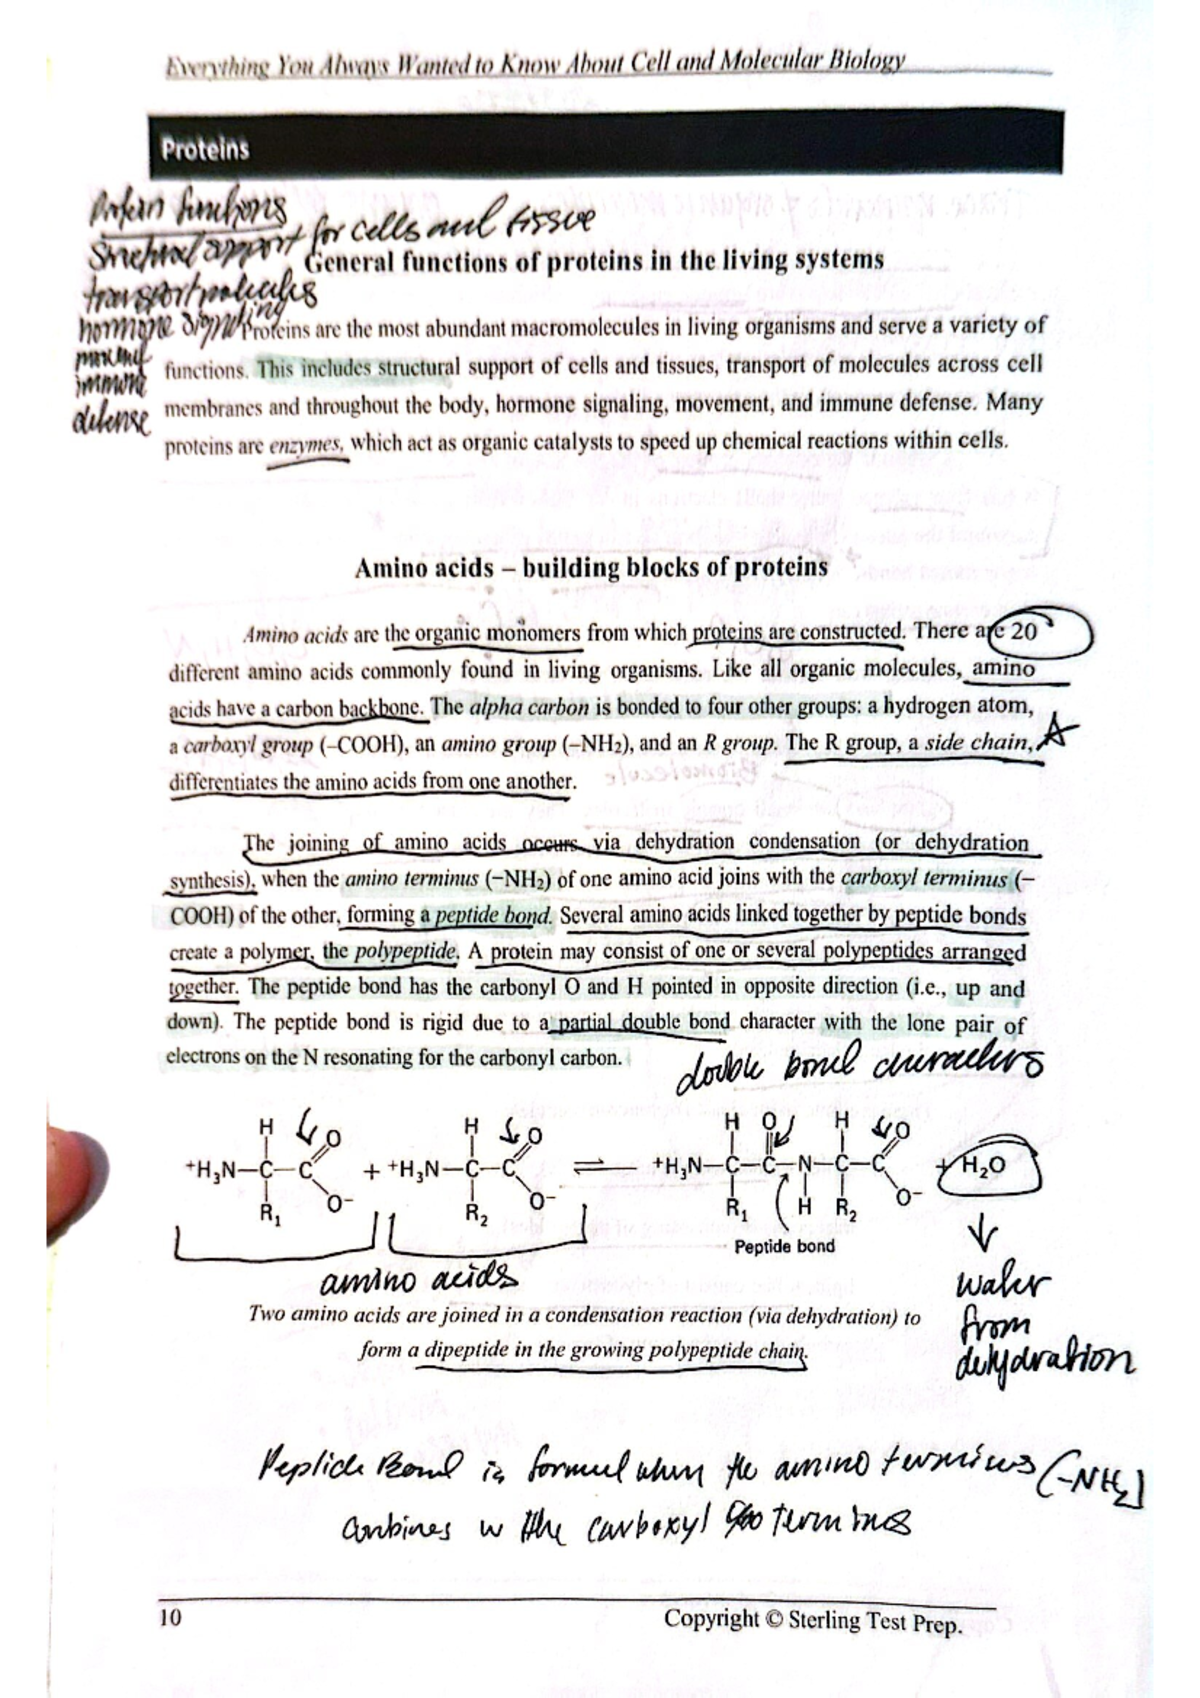 Everything You Always Wanted to Know About Cell and Molecular Biology
Proteins
Protein functions
Structural support for cells and tissue
General functions of proteins in the living systems
transport molecules
hormone signaling
Proteins are the most abundant macromolecules in living organisms and serve a variety of
immune
functions. This includes structural support of cells and tissues, transport of molecules across cell
defense
membranes and throughout the body, hormone signaling, movement, and immune defense. Many
proteins are enzymes, which act as organic catalysts to speed up chemical reactions within cells.
Amino acids – building blocks of proteins
Amino acids are the organic monomers from which proteins are constructed. There are 20
different amino acids commonly found in living organisms. Like all organic molecules, amino
acids have a carbon backbone. The alpha carbon is bonded to four other groups: a hydrogen atom,
a carboxyl group (–COOH), an amino group (–NH₂), and an R group. The R group, a side chain,
differentiates the amino acids from one another.
The joining of amino acids occurs via dehydration condensation (or dehydration
synthesis), when the amino terminus (–NH₂) of one amino acid joins with the carboxyl terminus (–
COOH) of the other, forming a peptide bond. Several amino acids linked together by peptide bonds
create a polymer, the polypeptide. A protein may consist of one or several polypeptides arranged
together. The peptide bond has the carbonyl O and H pointed in opposite direction (i.e., up and
down). The peptide bond is rigid due to a partial double bond character with the lone pair of
electrons on the N resonating for the carbonyl carbon.
double bond characters
H O H O H O H O
⁺H₃N–C–C + ⁺H₃N–C–C ⇌ ⁺H₃N–C–C–N–C–C + H₂O
R₁ O⁻ R₂ O⁻ R₁ H R₂ O⁻
Peptide bond
amino acids
water
from
dehydration
Two amino acids are joined in a condensation reaction (via dehydration) to
form a dipeptide in the growing polypeptide chain.
Peptide Bond is formed when the amino terminus (–NH₂)
combines w the carboxyl terminus
10
Copyright © Sterling Test Prep.